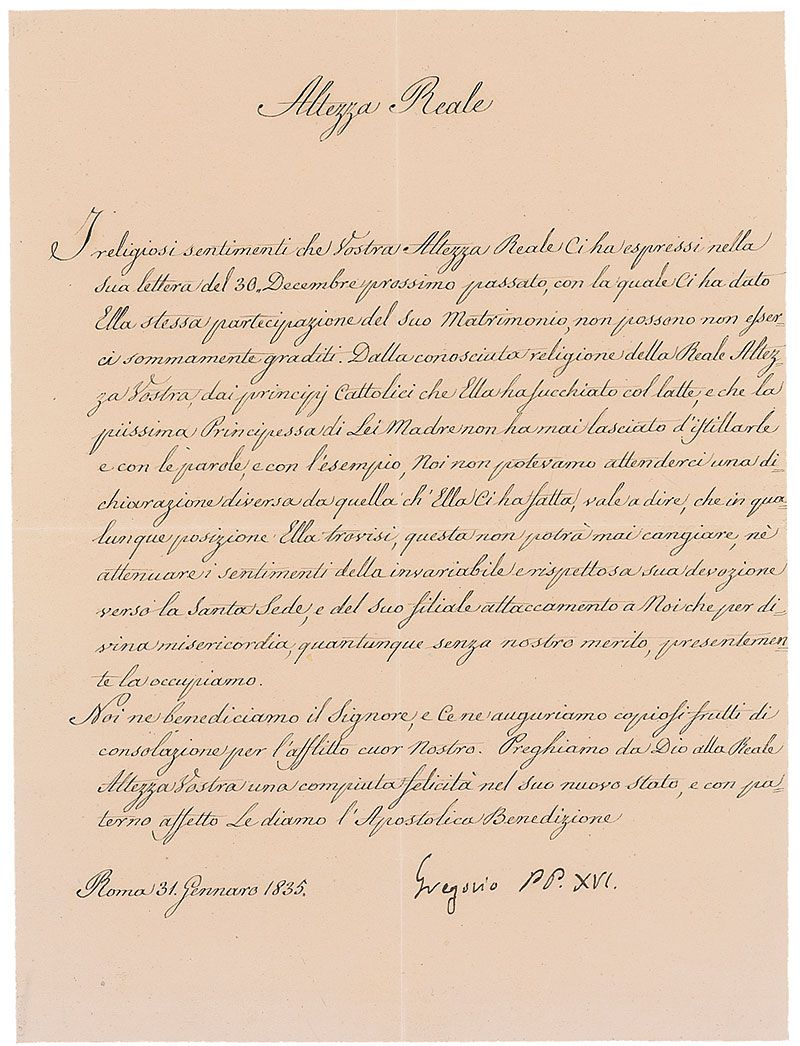 Altezza Reale
I religiosi sentimenti che Vostra Altezza Reale Ci ha espressi nella
sua lettera del 30,, Decembre prossimo passato, con la quale Ci ha dato
Ella stessa partecipazione del suo Matrimonio, non possono non esser-
ci sommamente graditi. Dalla conosciuta religione della Reale Altez=
za Vostra, dai principj Cattolici che Ella ha succhiato col latte, e che la
piissima Principessa di Lei Madre non ha mai lasciato d'istillarle
e con le parole, e con l'esempio, Noi non potevamo attenderci una di=
chiarazione diversa da quella ch'Ella Ci ha fatta, vale a dire, che in qua=
lunque posizione Ella trovisi, questa non potrà mai cangiare, nè
attenuare i sentimenti della invariabile e rispettosa sua devozione
verso la Santa Sede, e del suo filiale attaccamento a Noi che per di=
vina misericordia, quantunque senza nostro merito, presentemen=
te la occupiamo.
Noi ne benediciamo il Signore, e Ce ne auguriamo copiosi frutti di
consolazione per l'afflitto cuor Nostro. Preghiamo da Dio alla Reale
Altezza Vostra una compiuta felicità nel suo nuovo stato, e con pa=
terno affetto Le diamo l'Apostolica Benedizione
Roma 31. Gennaro 1835.
Gregorio PP. XVI.